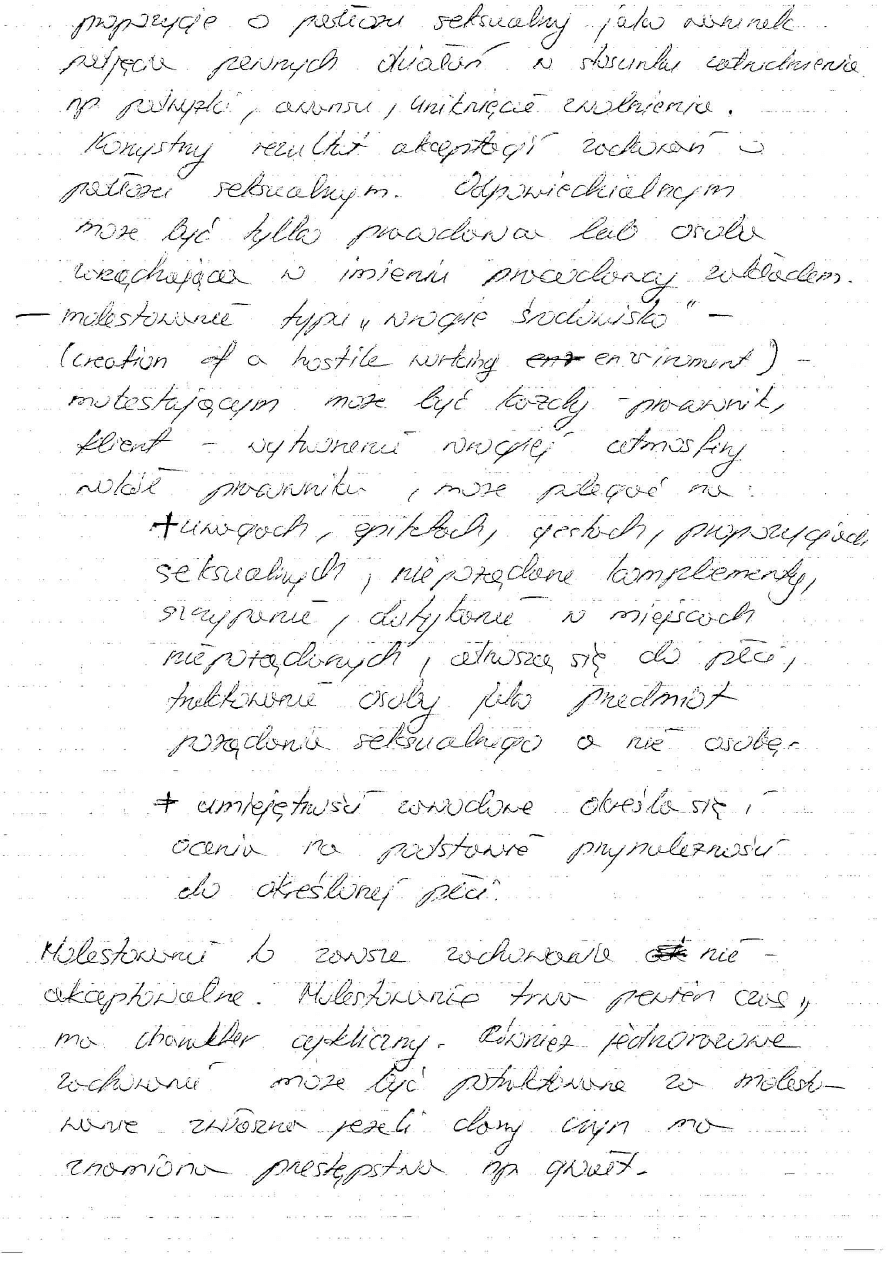 propozycje o podłożu seksualny jako warunek
podjęcia pewnych działań w stosunku zatrudnienia
np podwyżki, awansu, uniknięcie zwolnienia.
Korzystny rezultat akceptacji zachowań o
podłożu seksualnym. Odpowiedzialnym
może być tylko pracodawca lub osoba
zarządzająca w imieniu pracodawcy zakładem.
— molestowanie typu „wrogie środowisko" –
(creation of a hostile working environment) –
molestującym może być każdy - pracownik,
klient – wytworzenie wrogiej atmosfery
wokół pracownika, może polegać na:
+ uwagach, epitetach, gestach, propozycjach
seksualnych, niepożądane komplementy,
szczypanie, dotykanie w miejscach
niepożądanych, odnoszą się do płci,
traktowanie osoby jako przedmiot
pożądania seksualnego a nie osobę.
+ umiejętności zawodowe określa się i
ocenia na podstawie przynależności
do określonej płci.
Molestowanie to zawsze zachowanie nie –
akceptowalne. Molestowanie trwa pewien czas,
ma charakter cykliczny. Również jednorazowe
zachowanie może być potraktowane za molesto–
wanie zwłaszcza jeżeli dany czyn ma
znamiona przestępstwa np gwałt.